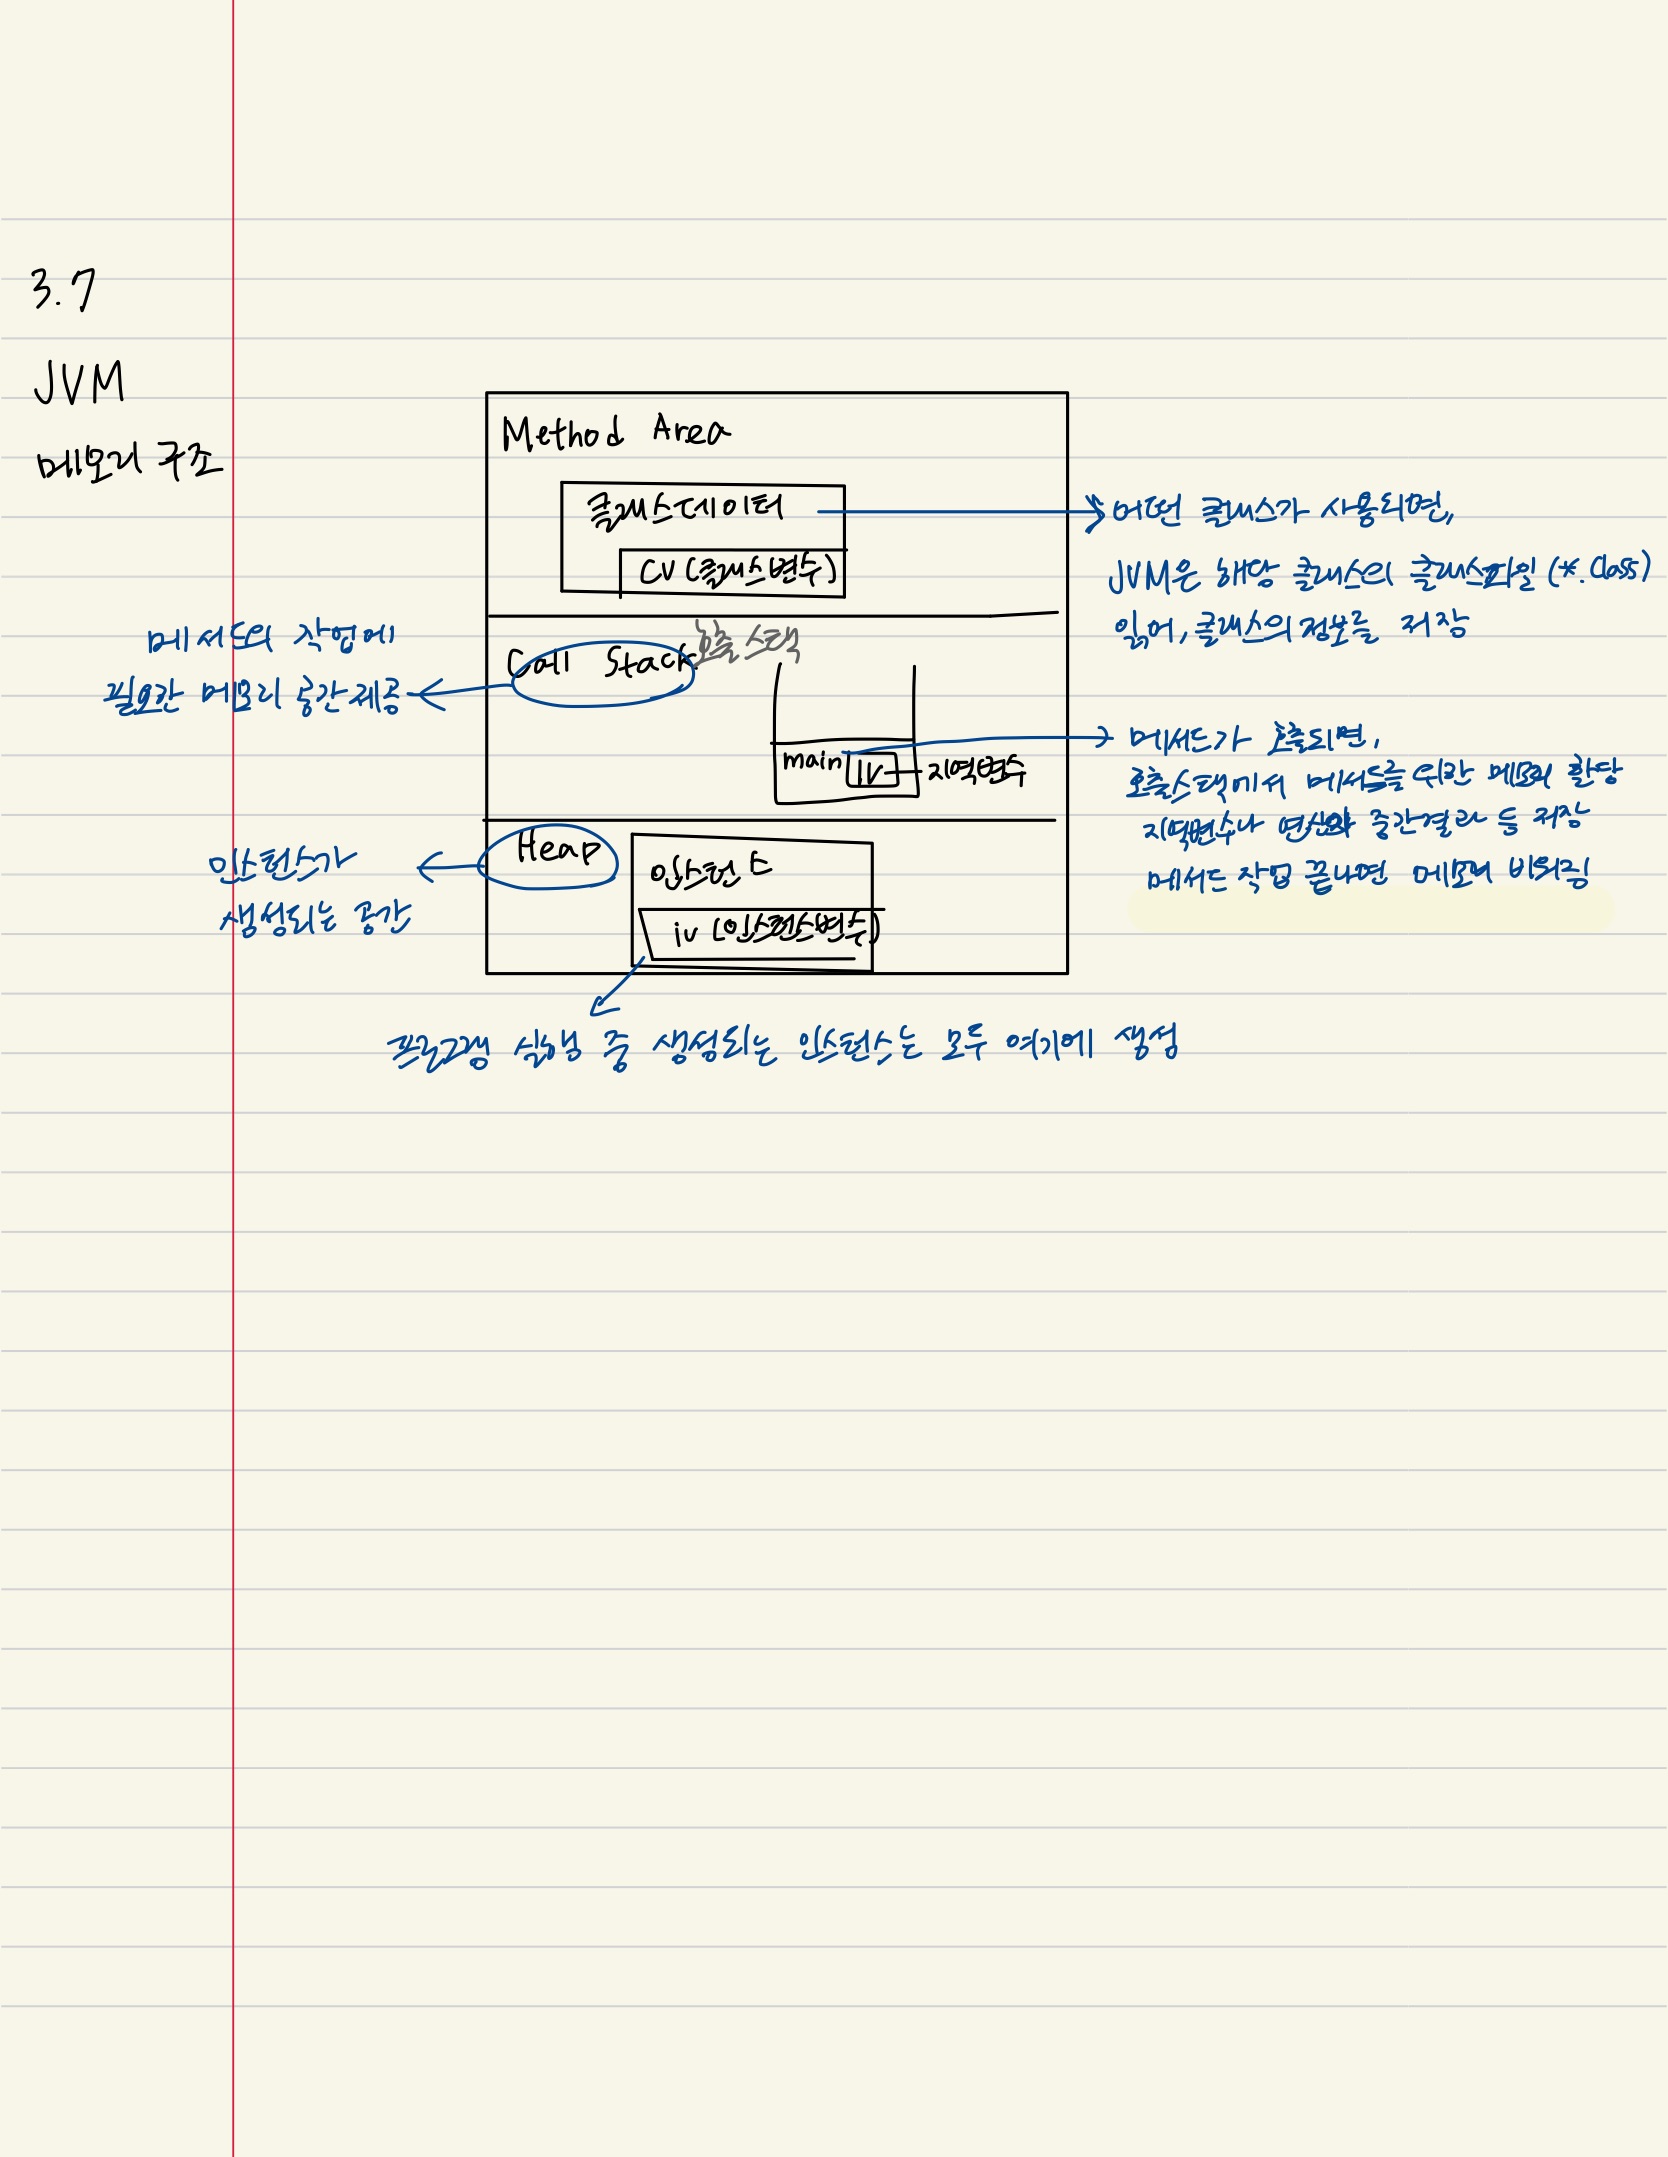 3.7
JVM
메모리 구조
Method Area
클래스데이터
CV (클래스변수)
어떤 클래스가 사용되면,
JVM은 해당 클래스의 클래스파일 (*.Class)
읽어, 클래스의 정보를 저장
메서드의 작업에
필요한 메모리 공간 제공
Call Stack 호출스택
main lv 지역변수
메서드가 호출되면,
호출스택에서 메서드를 위한 메모리 할당
지역변수나 연산의 중간결과 등 저장
메서드 작업 끝나면 메모리 비워짐
Heap
인스턴스
iv (인스턴스변수)
인스턴스가
생성되는 공간
프로그램 실행 중 생성되는 인스턴스는 모두 여기에 생성